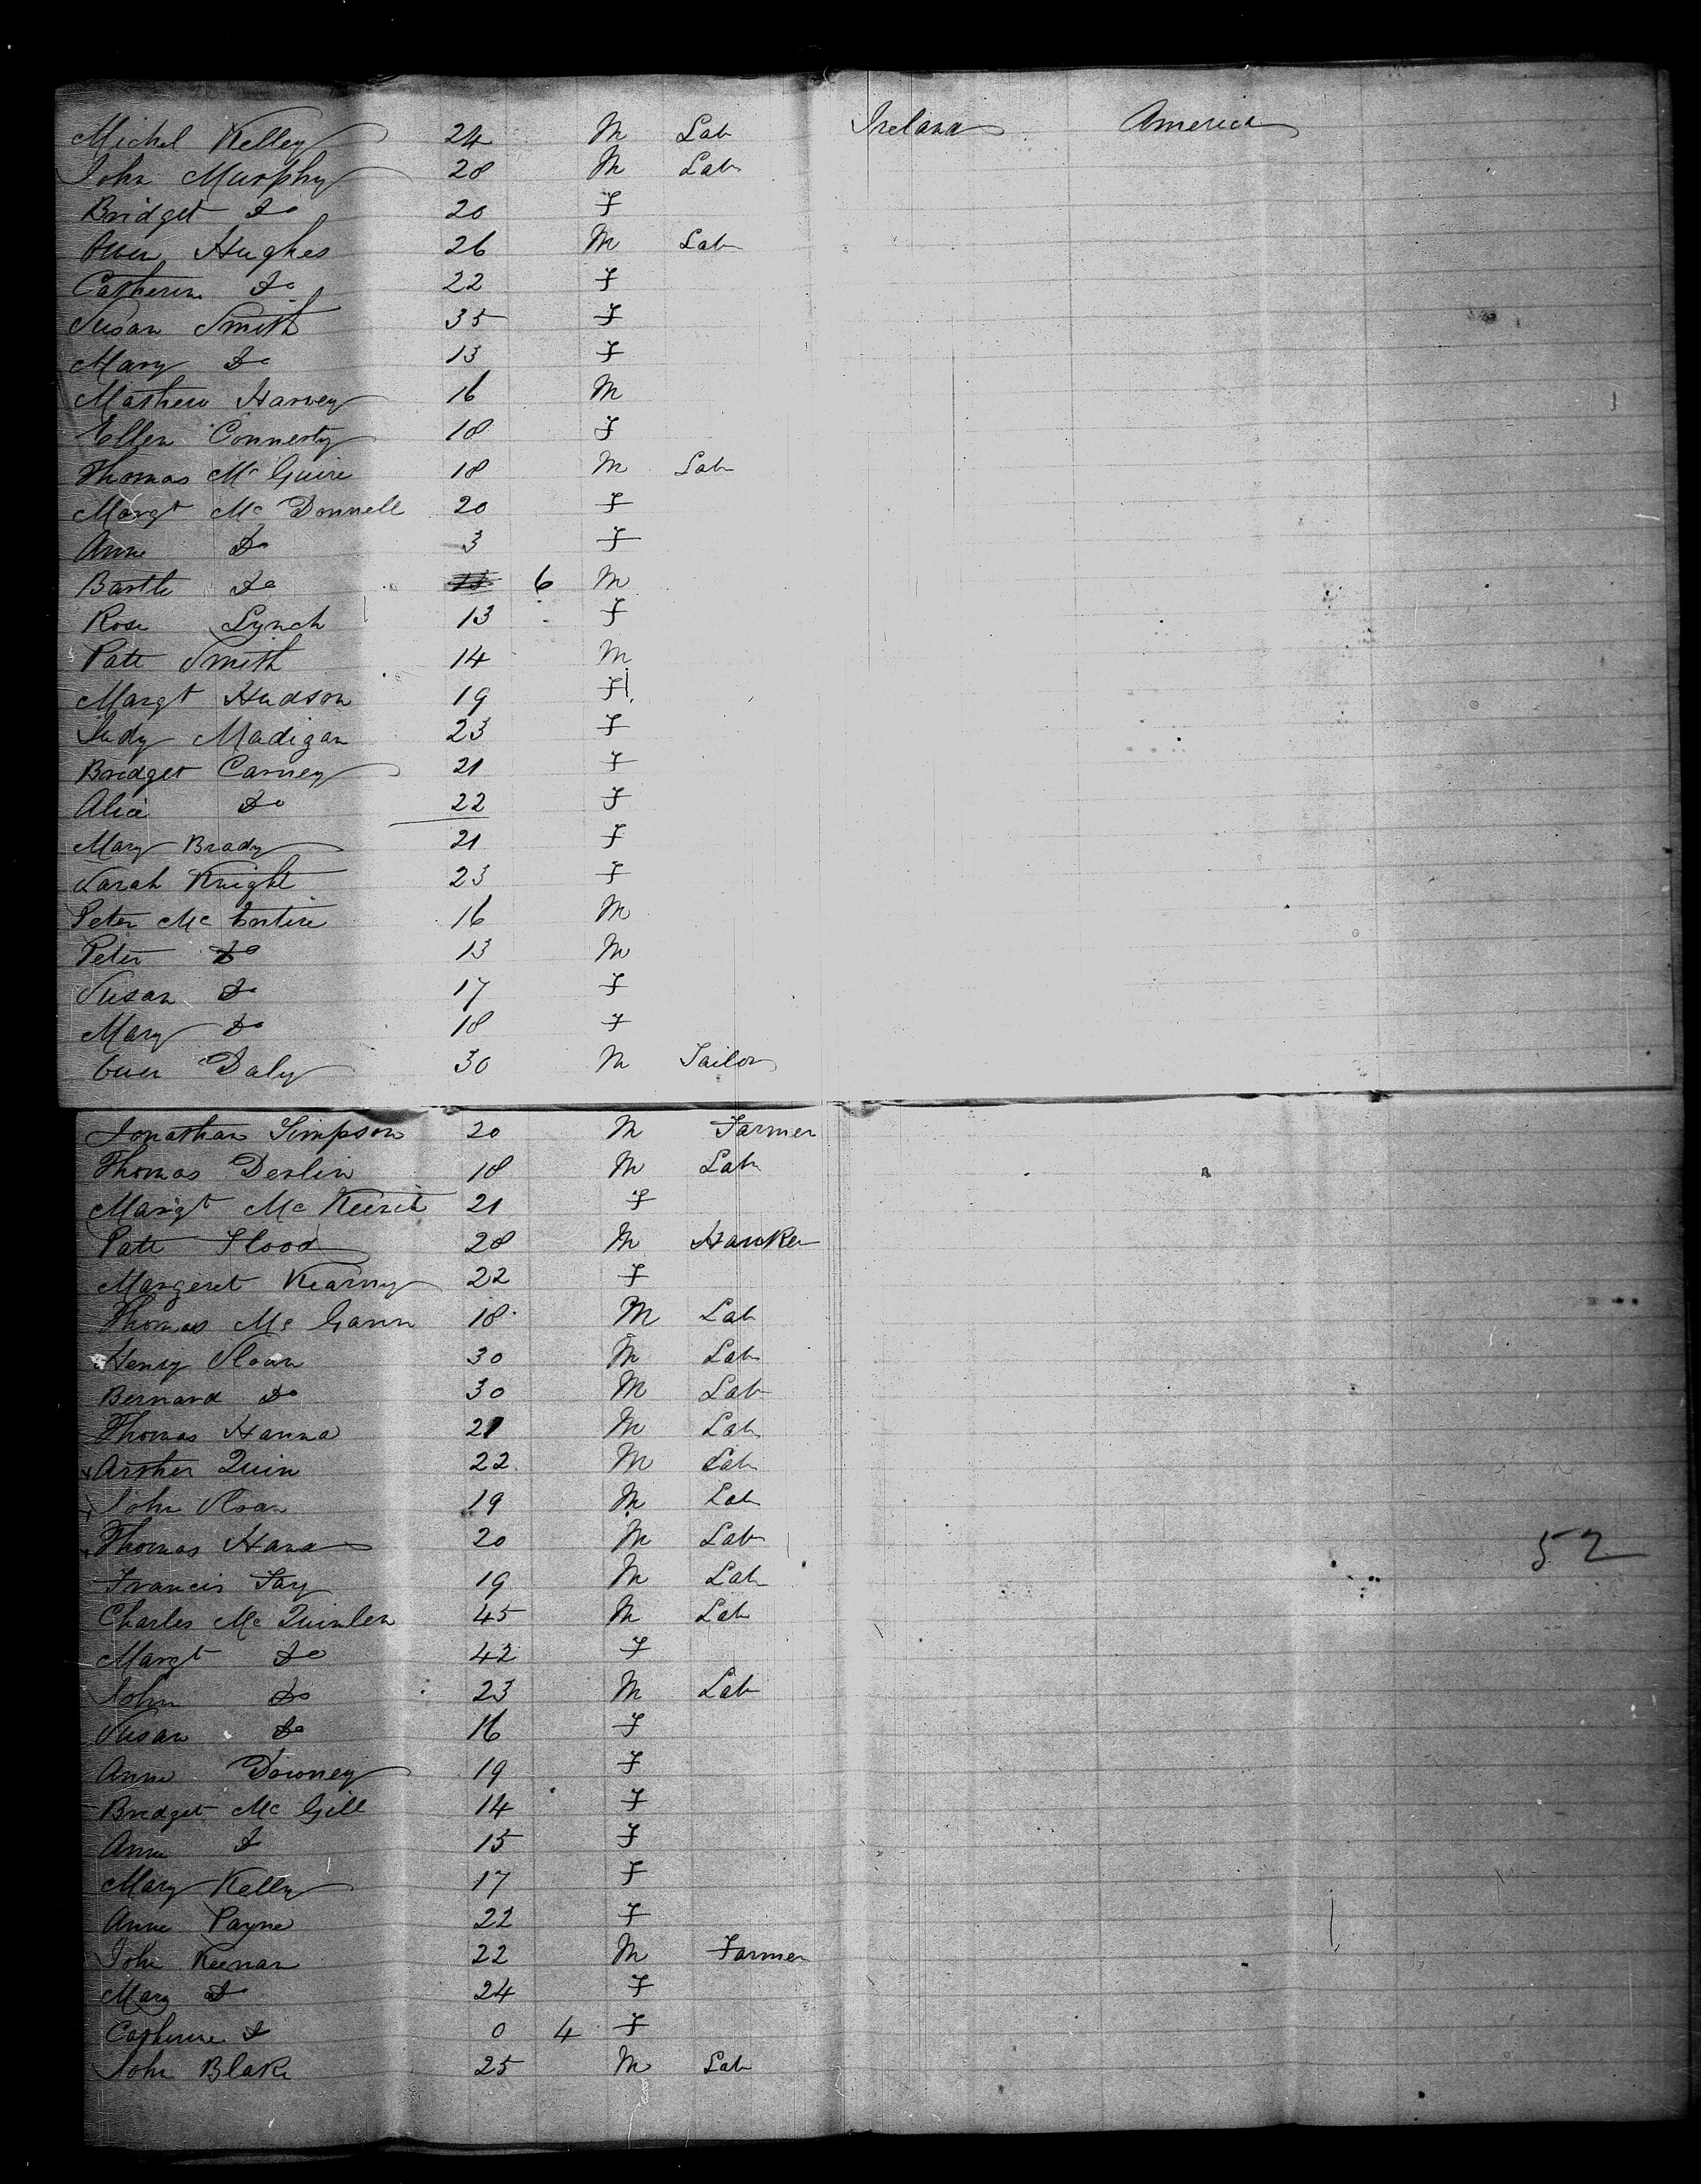 Michel Kelley 24 M Lab Ireland America
John Murphy 28 M Lab
Bridget Do 20 F
Owen Hughes 26 M Lab
Catherin Do 22 F
Susan Smith 35 F
Mary Do 13 F
Mathew Harvey 16 M
Ellen Connerty 18 F
Thomas Mc Guire 18 M Lab
Margt Mc Donnell 20 F
Anne Do 3 F
Bartle Do 6 M
Rose Lynch 13 F
Patt Smith 14 M
Margt Hudson 19 F
Judy Madigan 23 F
Bridget Carney 21 F
Alice Do 22 F
Mary Brady 21 F
Sarah Knight 23 F
Peter Mc 16 M
Peter Do 13 M
Susan Do 17 F
Mary Do 18 F
Owen Daly 30 M Tailor
Jonathan Simpson 20 M Farmer
Thomas Devlin 18 M Lab
Margt Mc 21 F
Patt Flood 28 M Hawker
Margeret Kearny 22 F
Thomas Mc Gann 18 M Lab
Henry Sloan 30 M Lab
Bernard Do 30 M Lab
Thomas Hanna 21 M Lab
x Arther Quin 22 M Lab
x John Sloan 19 M Lab
x Thomas Hana 20 M Lab 52
Francis Fay 19 M Lab
Charles Mc Quinlen 45 M Lab
Margt Do 42 F
John Do 23 M Lab
Susan Do 16 F
Anne Downey 19 F
Bridget Mc Gill 14 F
Anne Do 15 F
Mary Kelly 17 F
Anne Payne 22 F
John Keenan 22 M Farmer
Mary Do 24 F
Catherine Do 0 4 F
John Blake 25 M Lab